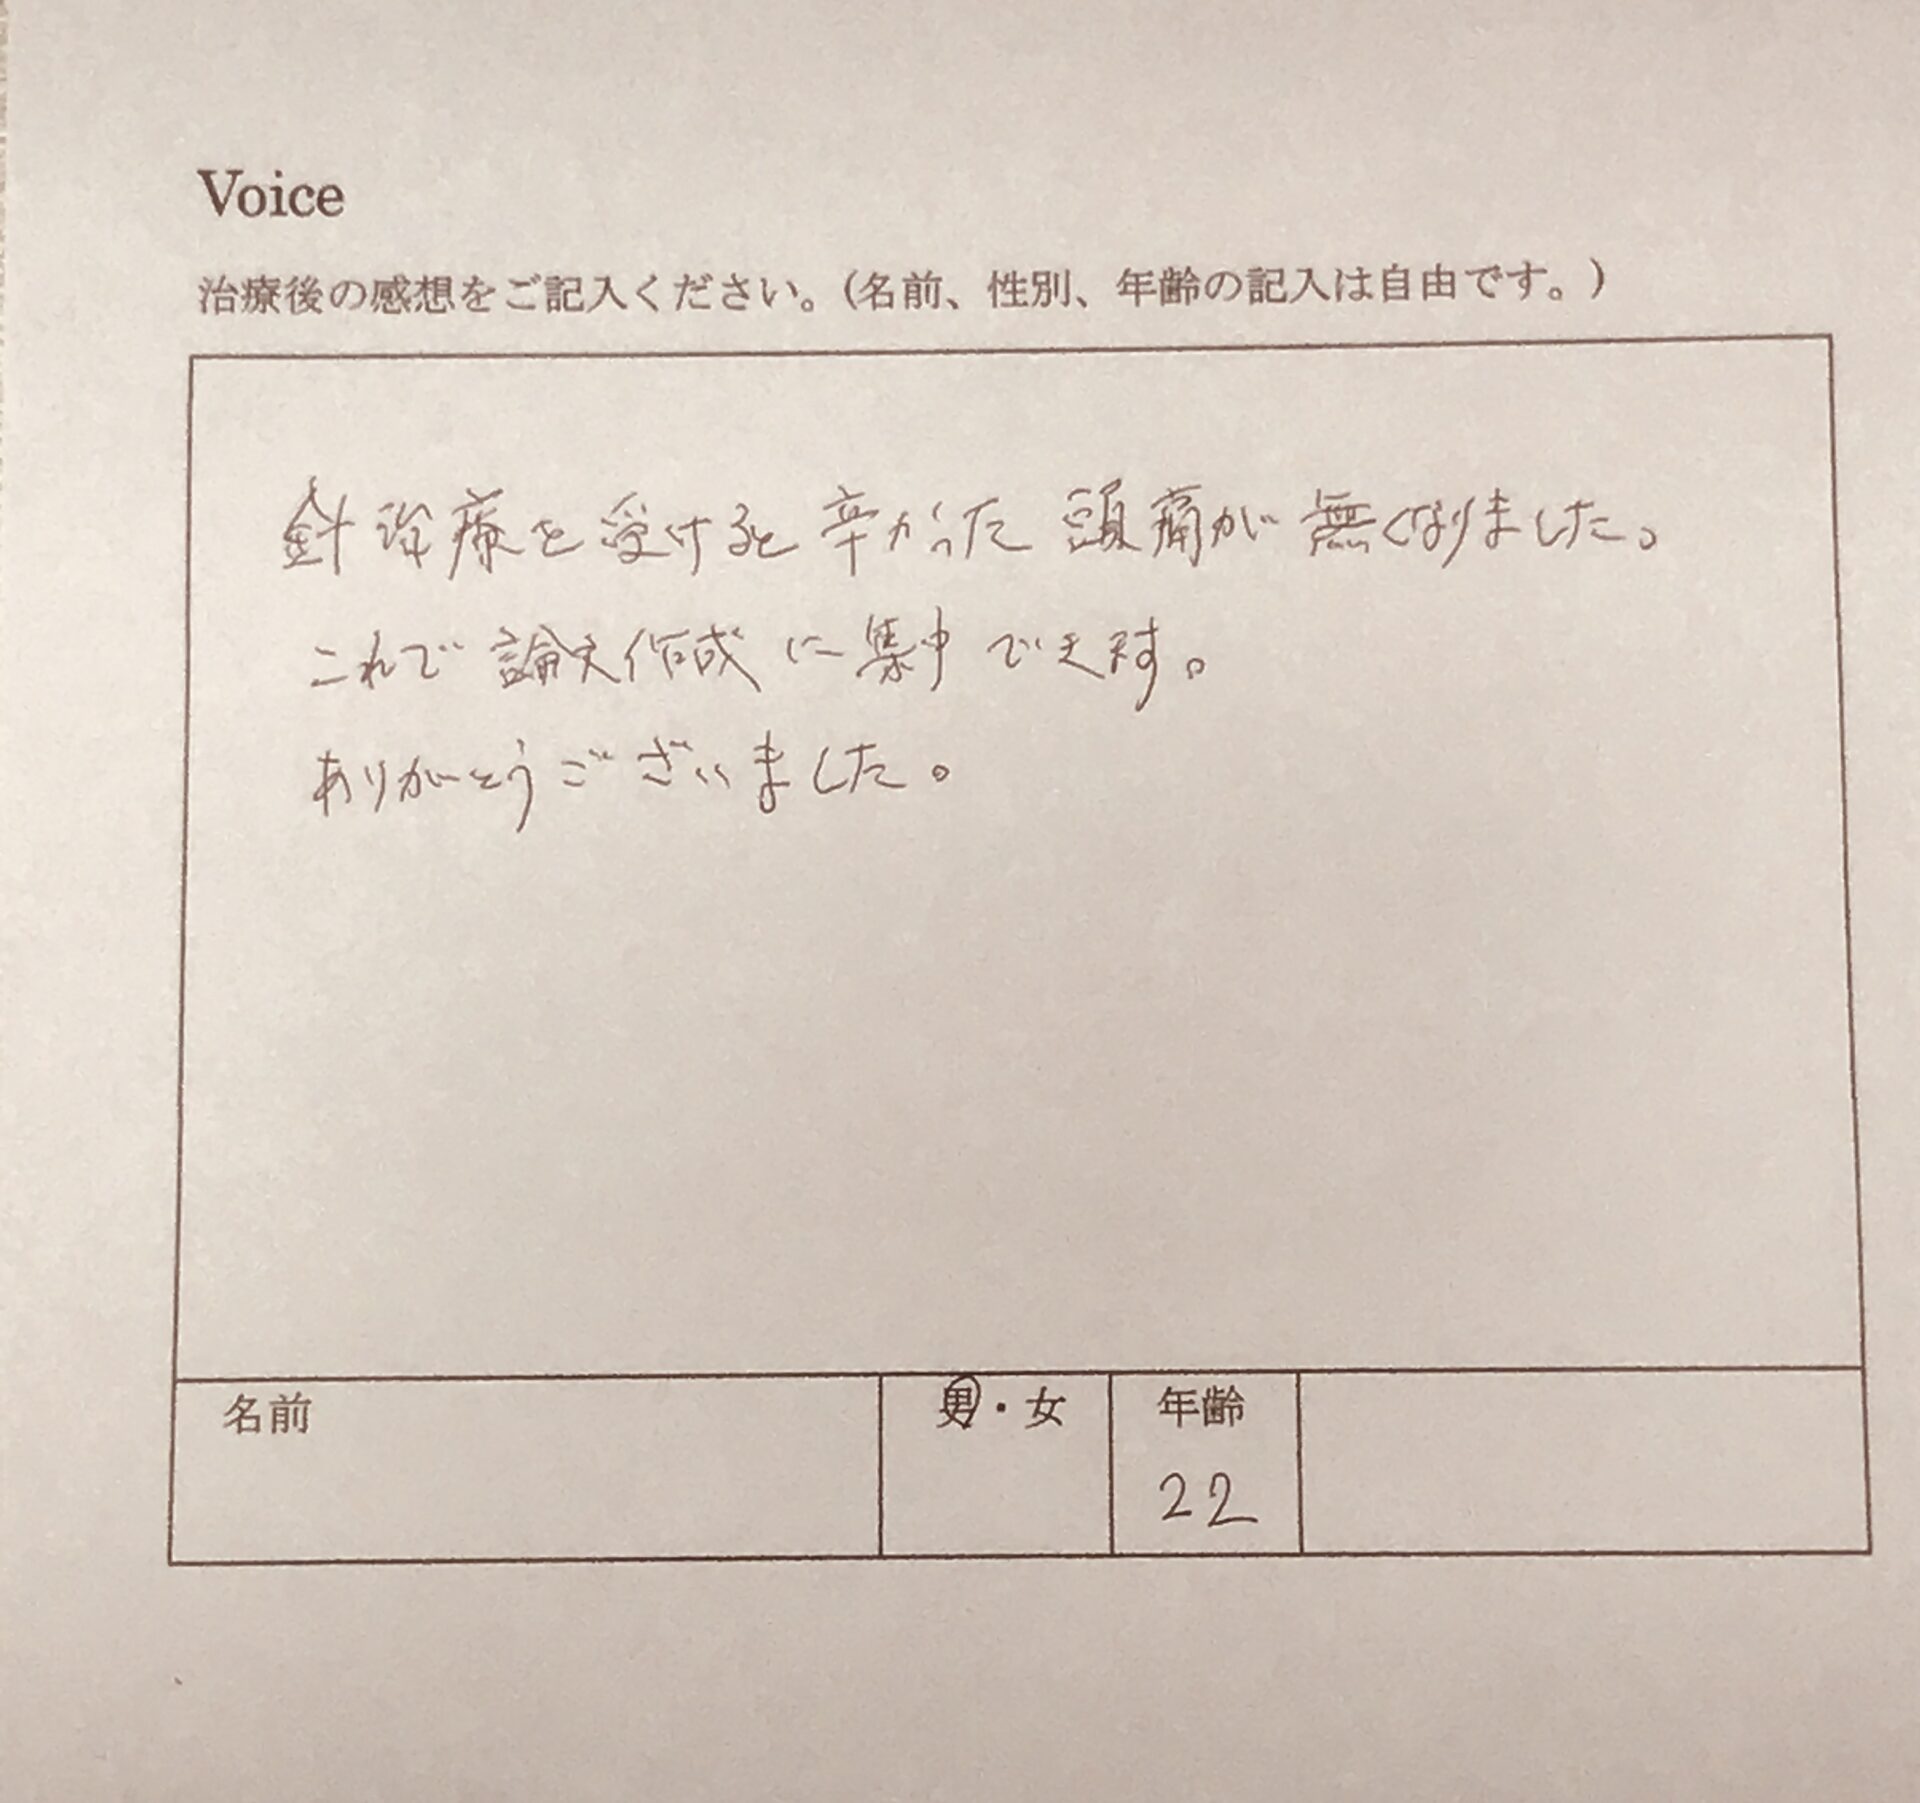 Voice
治療後の感想をご記入ください。（名前、性別、年齢の記入は自由です。）
針治療を受けると辛かった頭痛が無くなりました。
これで論文作成に集中できます。
ありがとうございました。
名前 男・女 年齢
22